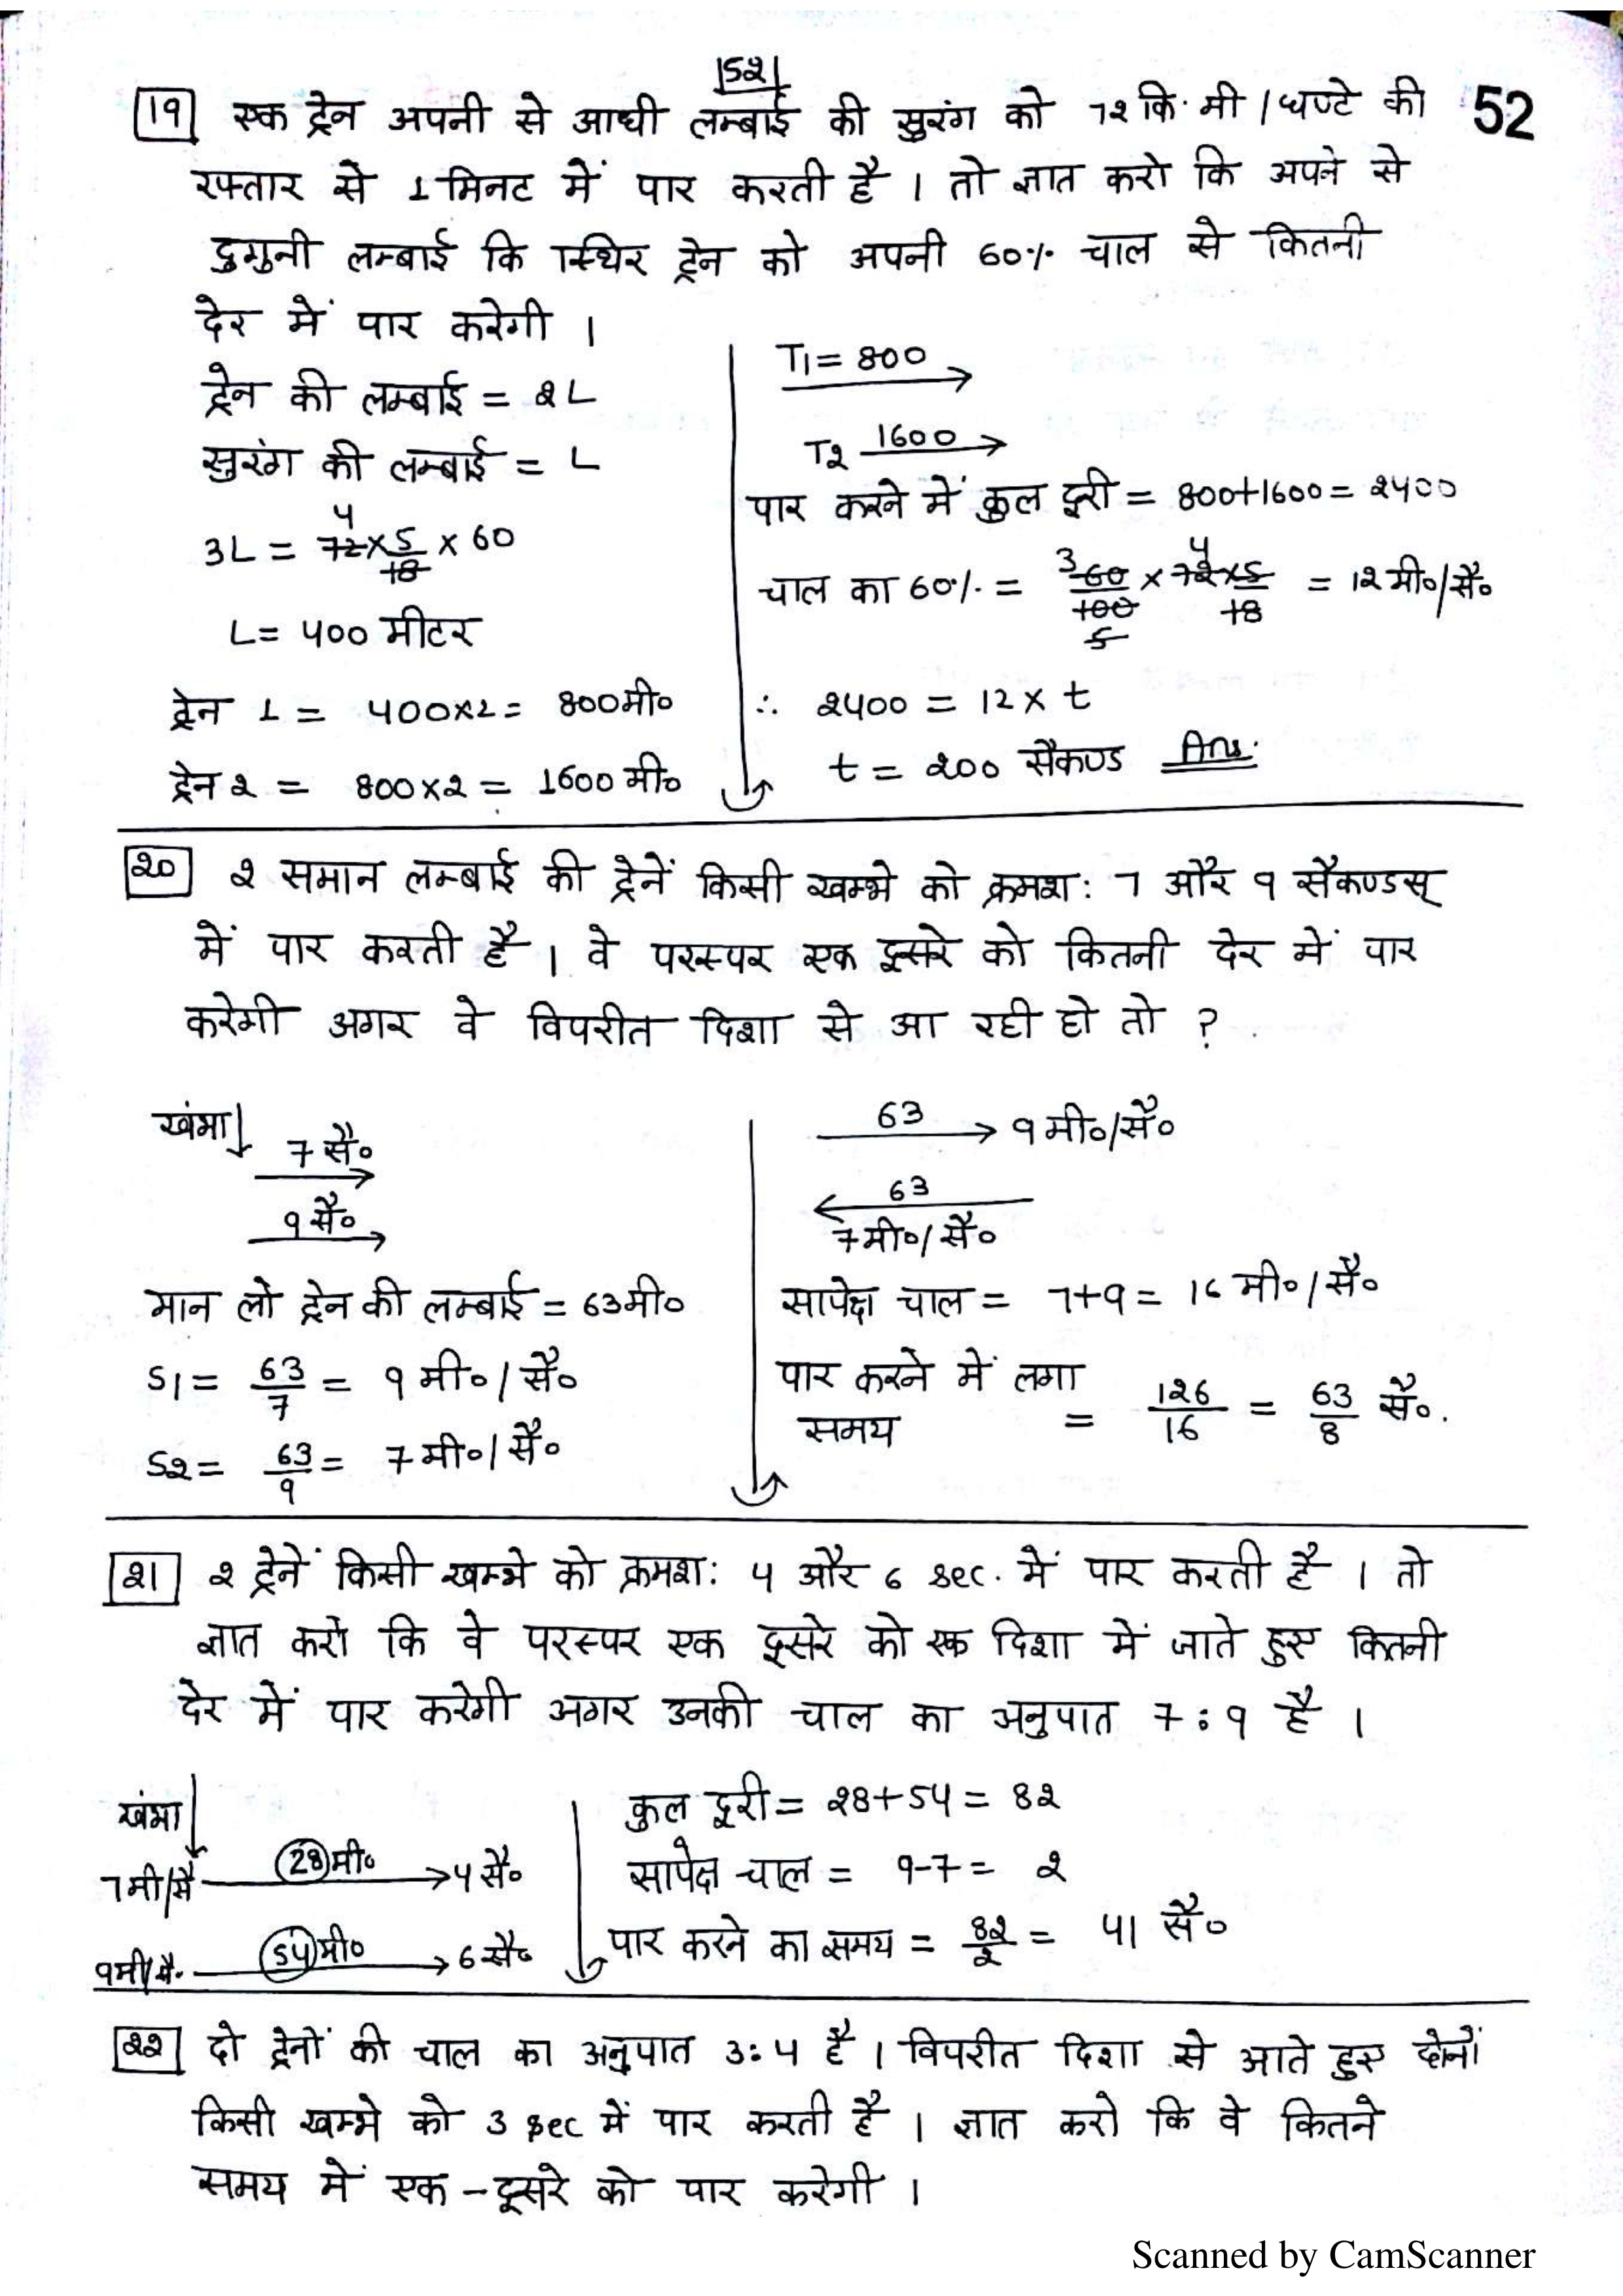 |52|
52
19 एक ट्रेन अपनी से आधी लम्बाई की सुरंग को 72 कि. मी / घण्टे की
रफ्तार से 1 मिनट में पार करती है । तो ज्ञात करो कि अपने से
दुगुनी लम्बाई कि स्थिर ट्रेन को अपनी 60% चाल से कितनी
देर में पार करेगी ।
ट्रेन की लम्बाई = 2L
सुरंग की लम्बाई = L
4
3L = 72 × 5/18 × 60
L = 400 मीटर
ट्रेन 1 = 400×2 = 800 मी०
ट्रेन 2 = 800×2 = 1600 मी०
T1 = 800
T2 1600
पार करने में कुल दूरी = 800+1600 = 2400
चाल का 60% = 3 60/100 5 × 4 72×5/18 = 12 मी०/सै०
∴ 2400 = 12 × t
t = 200 सैकण्ड Ans.
20 2 समान लम्बाई की ट्रेनें किसी खम्भे को क्रमश: 7 और 9 सैकण्डस्
में पार करती है । वे परस्पर एक दूसरे को कितनी देर में पार
करेगी अगर वे विपरीत दिशा से आ रही हो तो ?
खंभा
7 सै०
9 सै०
मान लो ट्रेन की लम्बाई = 63 मी०
S1 = 63/7 = 9 मी० / सै०
S2 = 63/9 = 7 मी०/ सै०
63 9 मी०/सै०
63
7 मी०/ सै०
सापेक्ष चाल = 7+9 = 16 मी० / सै०
पार करने में लगा
समय = 126/16 = 63/8 सै०.
21 2 ट्रेनें किसी खम्भे को क्रमश: 4 और 6 sec. में पार करती है । तो
ज्ञात करो कि वे परस्पर एक दूसरे को एक दिशा में जाते हुए कितनी
देर में पार करेगी अगर उनकी चाल का अनुपात 7 : 9 है ।
खंभा
7 मी/सै 28 मी० 4 सै०
9 मी/सै. 54 मी० 6 सै०
कुल दूरी = 28+54 = 82
सापेक्ष चाल = 9-7 = 2
पार करने का समय = 82/2 = 41 सै०
22 दो ट्रेनों की चाल का अनुपात 3:4 है । विपरीत दिशा से आते हुए दोनों
किसी खम्भे को 3 sec में पार करती है । ज्ञात करो कि वे कितने
समय में एक - दूसरे को पार करेगी ।
Scanned by CamScanner